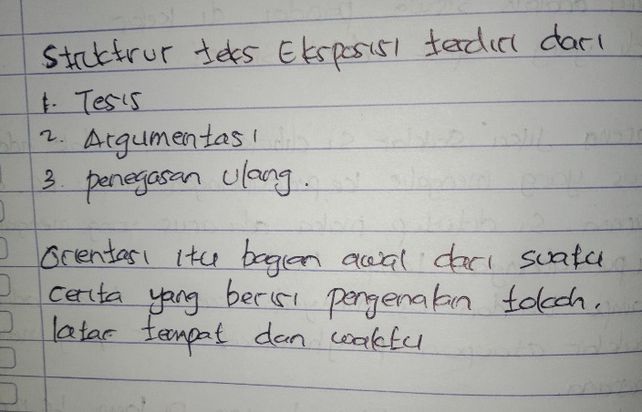 Struktrur teks Eksposisi terdiri dari
1. Tesis
2. Argumentasi
3. penegasan Ulang.
Orientasi itu bagian awal dari suatu
cerita yang berisi pengenalan tokoh.
latar tempat dan waktu